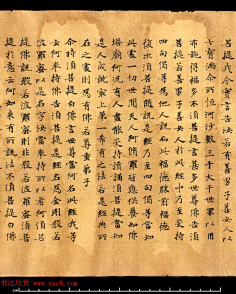 菩提我今實言告汝若善男子善女人以
七寶滿尒所恒河沙數三千大千世界以用
布施得福多不須菩提言甚多世尊佛告須
菩提若善男子善女人於此經中乃至受持
四句偈等為他人說而此福德勝前福德
復次須菩提隨說是經乃至四句偈等當知
此處一切世間天人阿修羅皆應供養如佛
塔廟何況有人盡能受持讀誦須菩提當知
是人成就最上第一希有之法若是經典所
在之處則為有佛若尊重弟子
尒時須菩提白佛言世尊當何名此經我等
云何奉持佛告須菩提是經名為金剛般若
波羅蜜以是名字汝當奉持所以者何須菩
提佛說般若波羅蜜則非般若波羅蜜須菩
提於意云何如來有所說法不須菩提白佛
书法欣赏
www.yac8.com